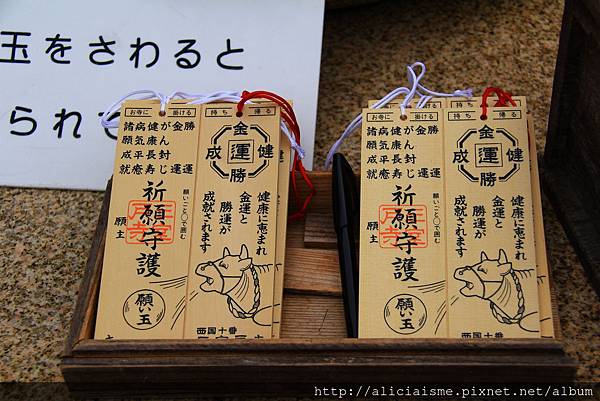 玉をさわると
られて
お寺に 掛ける
勝運
金運
がん封じ
健康長寿
病気平癒
諸願成就
願いごと〇で囲む
祈願守護
願主
願い玉
持ち 帰る
金
成 運 健
勝
健康に恵まれ
金運と
勝運が
成就されます
西国十番
お寺に 掛ける
勝運
金運
がん封じ
健康長寿
病気平癒
諸願成就
願いごと〇で囲む
祈願守護
願主
願い玉
持ち 帰る
金
成 運 健
勝
健康に恵まれ
金運と
勝運が
成就されます
西国十番
http://aliciaisme.pixnet.net/album